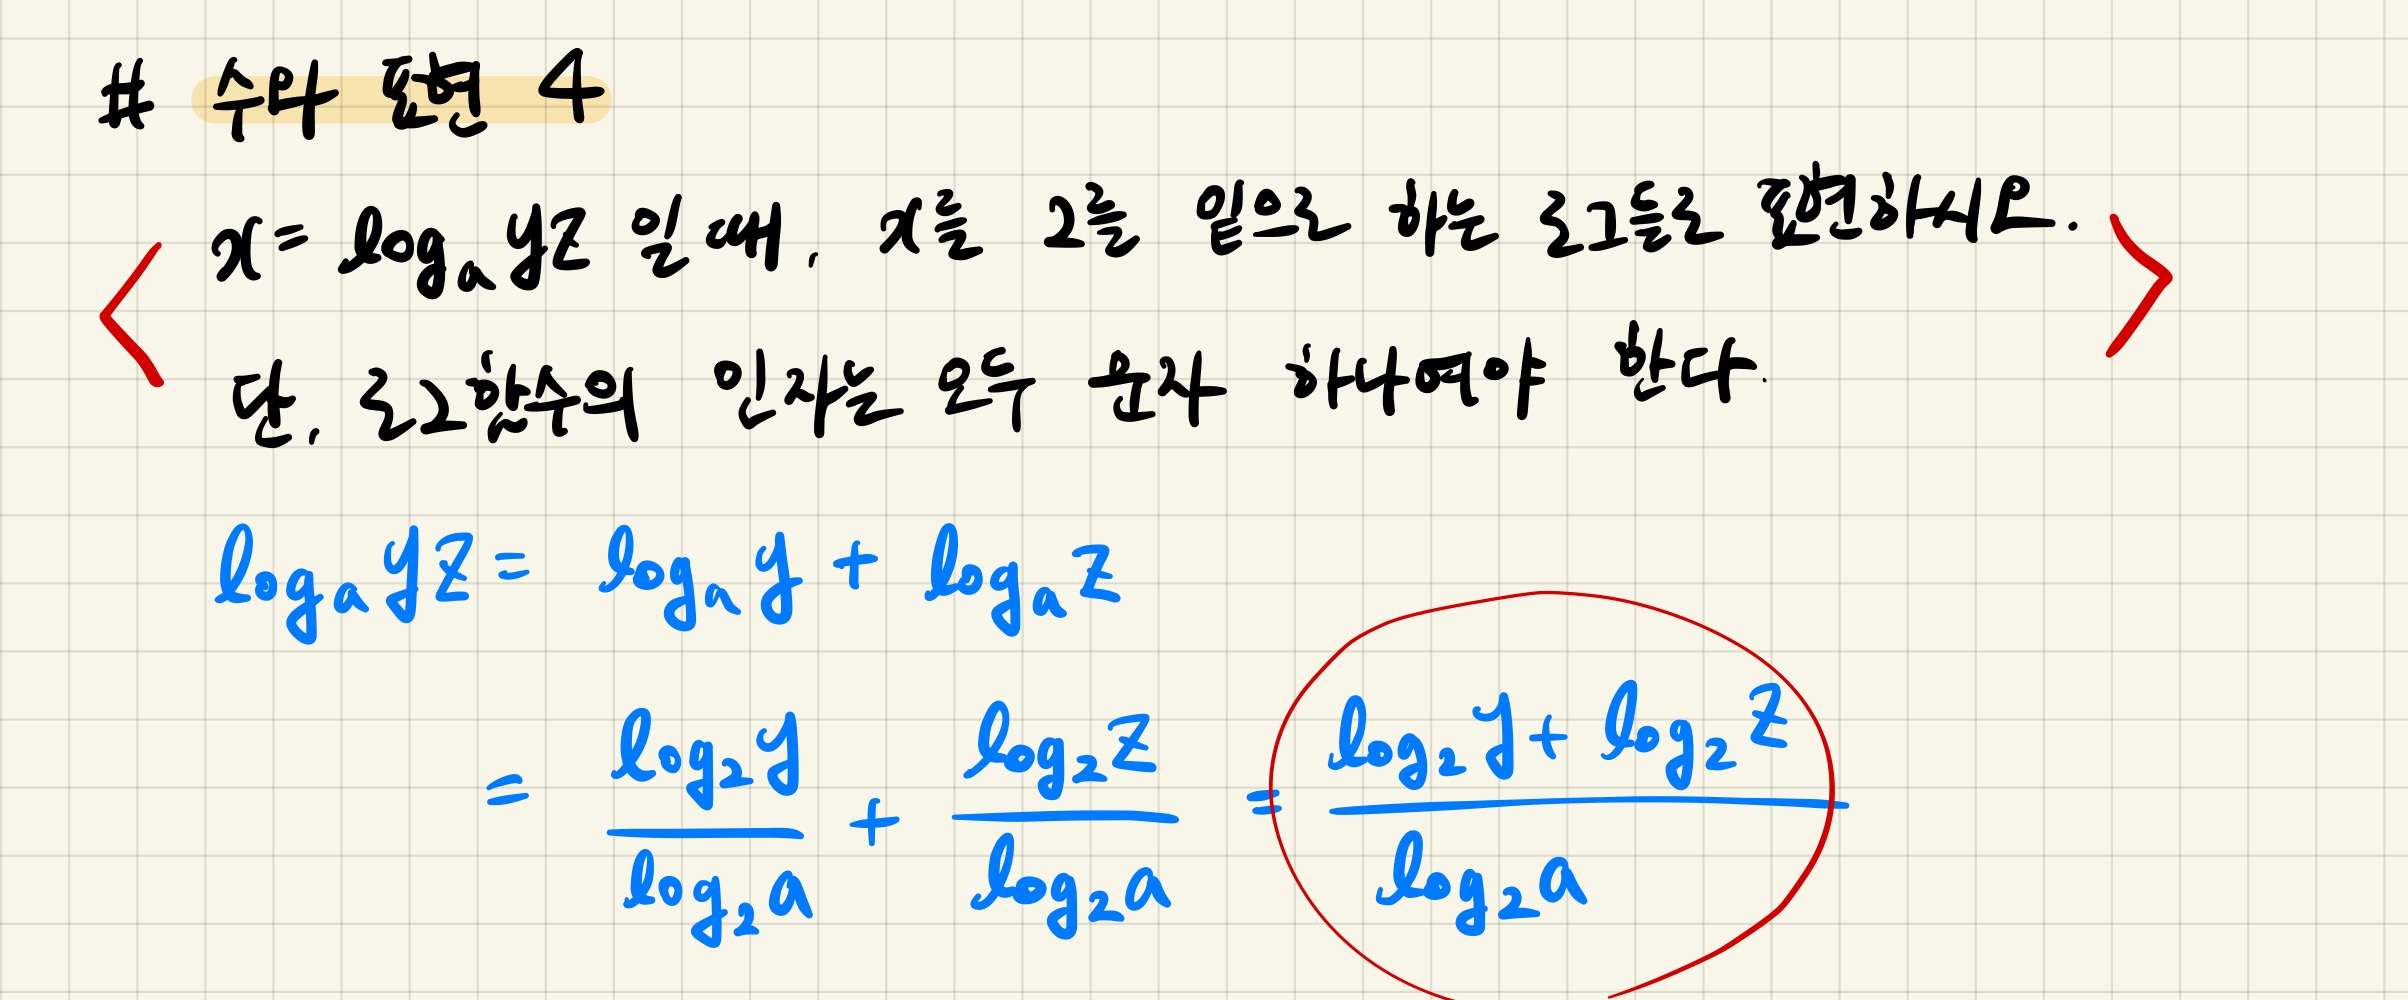 # 수와 표현 4
x = logₐ yz 일 때, x를 2를 밑으로 하는 로그들로 표현하시오.
단, 로그함수의 인자는 모두 문자 하나여야 한다.
logₐ yz = logₐ y + logₐ z
= log₂ y / log₂ a + log₂ z / log₂ a = (log₂ y + log₂ z) / log₂ a